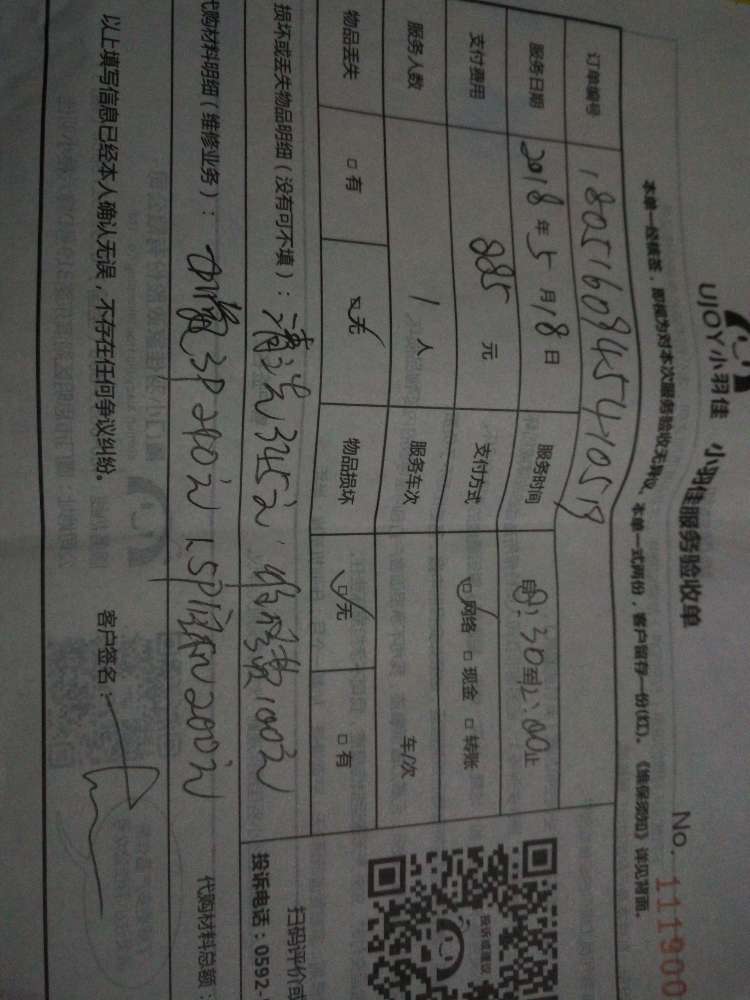 UJOY小羽佳 小羽佳服务验收单 No. 111900
本单一经核签，即视为对本次服务验收无异议。本单一式两份，客户留存一份(红)。《维保须知》详见背面。
订单编号 180516094547-10519
服务日期 2018年5月18日 服务时间 自8:30至12:00止
支付费用 885元 支付方式 网络 □现金 □转账
服务人数 1人 服务车次 车/次
物品丢失 □有 □无 物品损坏 □无 □有
损坏或丢失物品明细（没有可不填）：清洗345元 100元
代购材料明细（维修业务）：加氟3P 240元 1.5P 200元
代购材料总额：
以上填写信息已经本人确认无误，不存在任何争议纠纷。 客户签名：
投诉或建议
扫码评价或
投诉电话：0592-